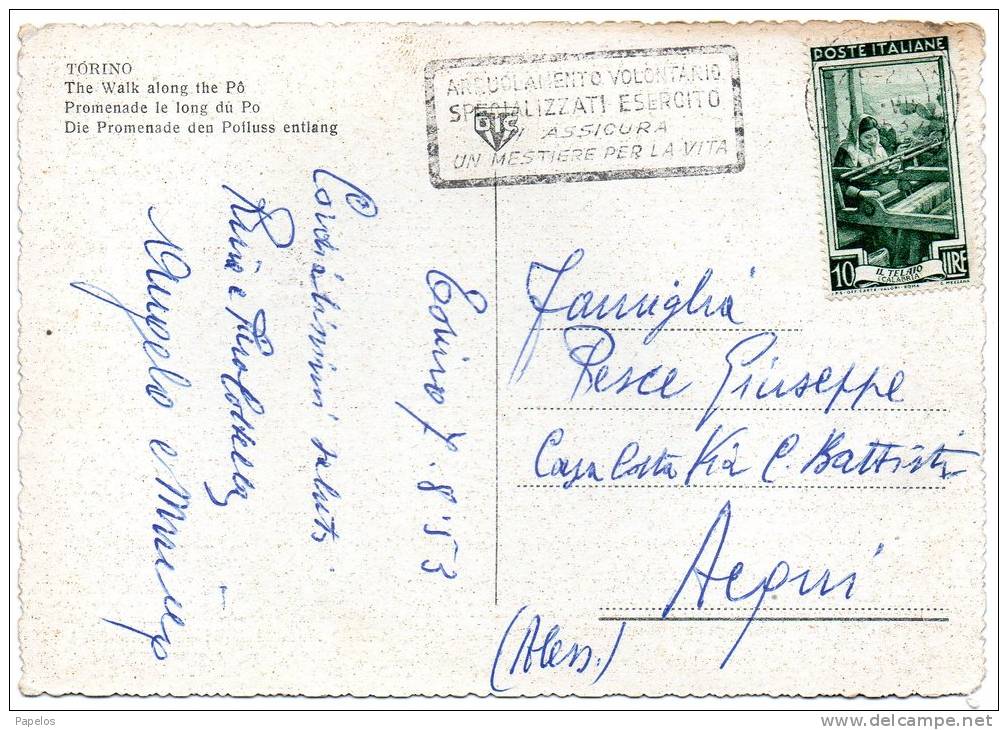 TÓRINO
The Walk along the Pô
Promenade le long dú Po
Die Promenade den Potluss entlang
ARRUOLAMENTO VOLONTARIO
SPECIALIZZATI ESERCITO
ASSICURA
UN MESTIERE PER LA VITA
POSTE ITALIANE
10 LIRE
IL TELAIO
(CALABRIA)
I.P.S.-OFF. CARTE-VALORI-ROMA
C. MEZZANA
Torino 7.8.53
Cordialissimi saluti
e
Angelo e
Famiglia
Pesce Giuseppe
Casa Costa Via C. Battisti
Acqui
(Aless.)
Papelos
delcampe.net